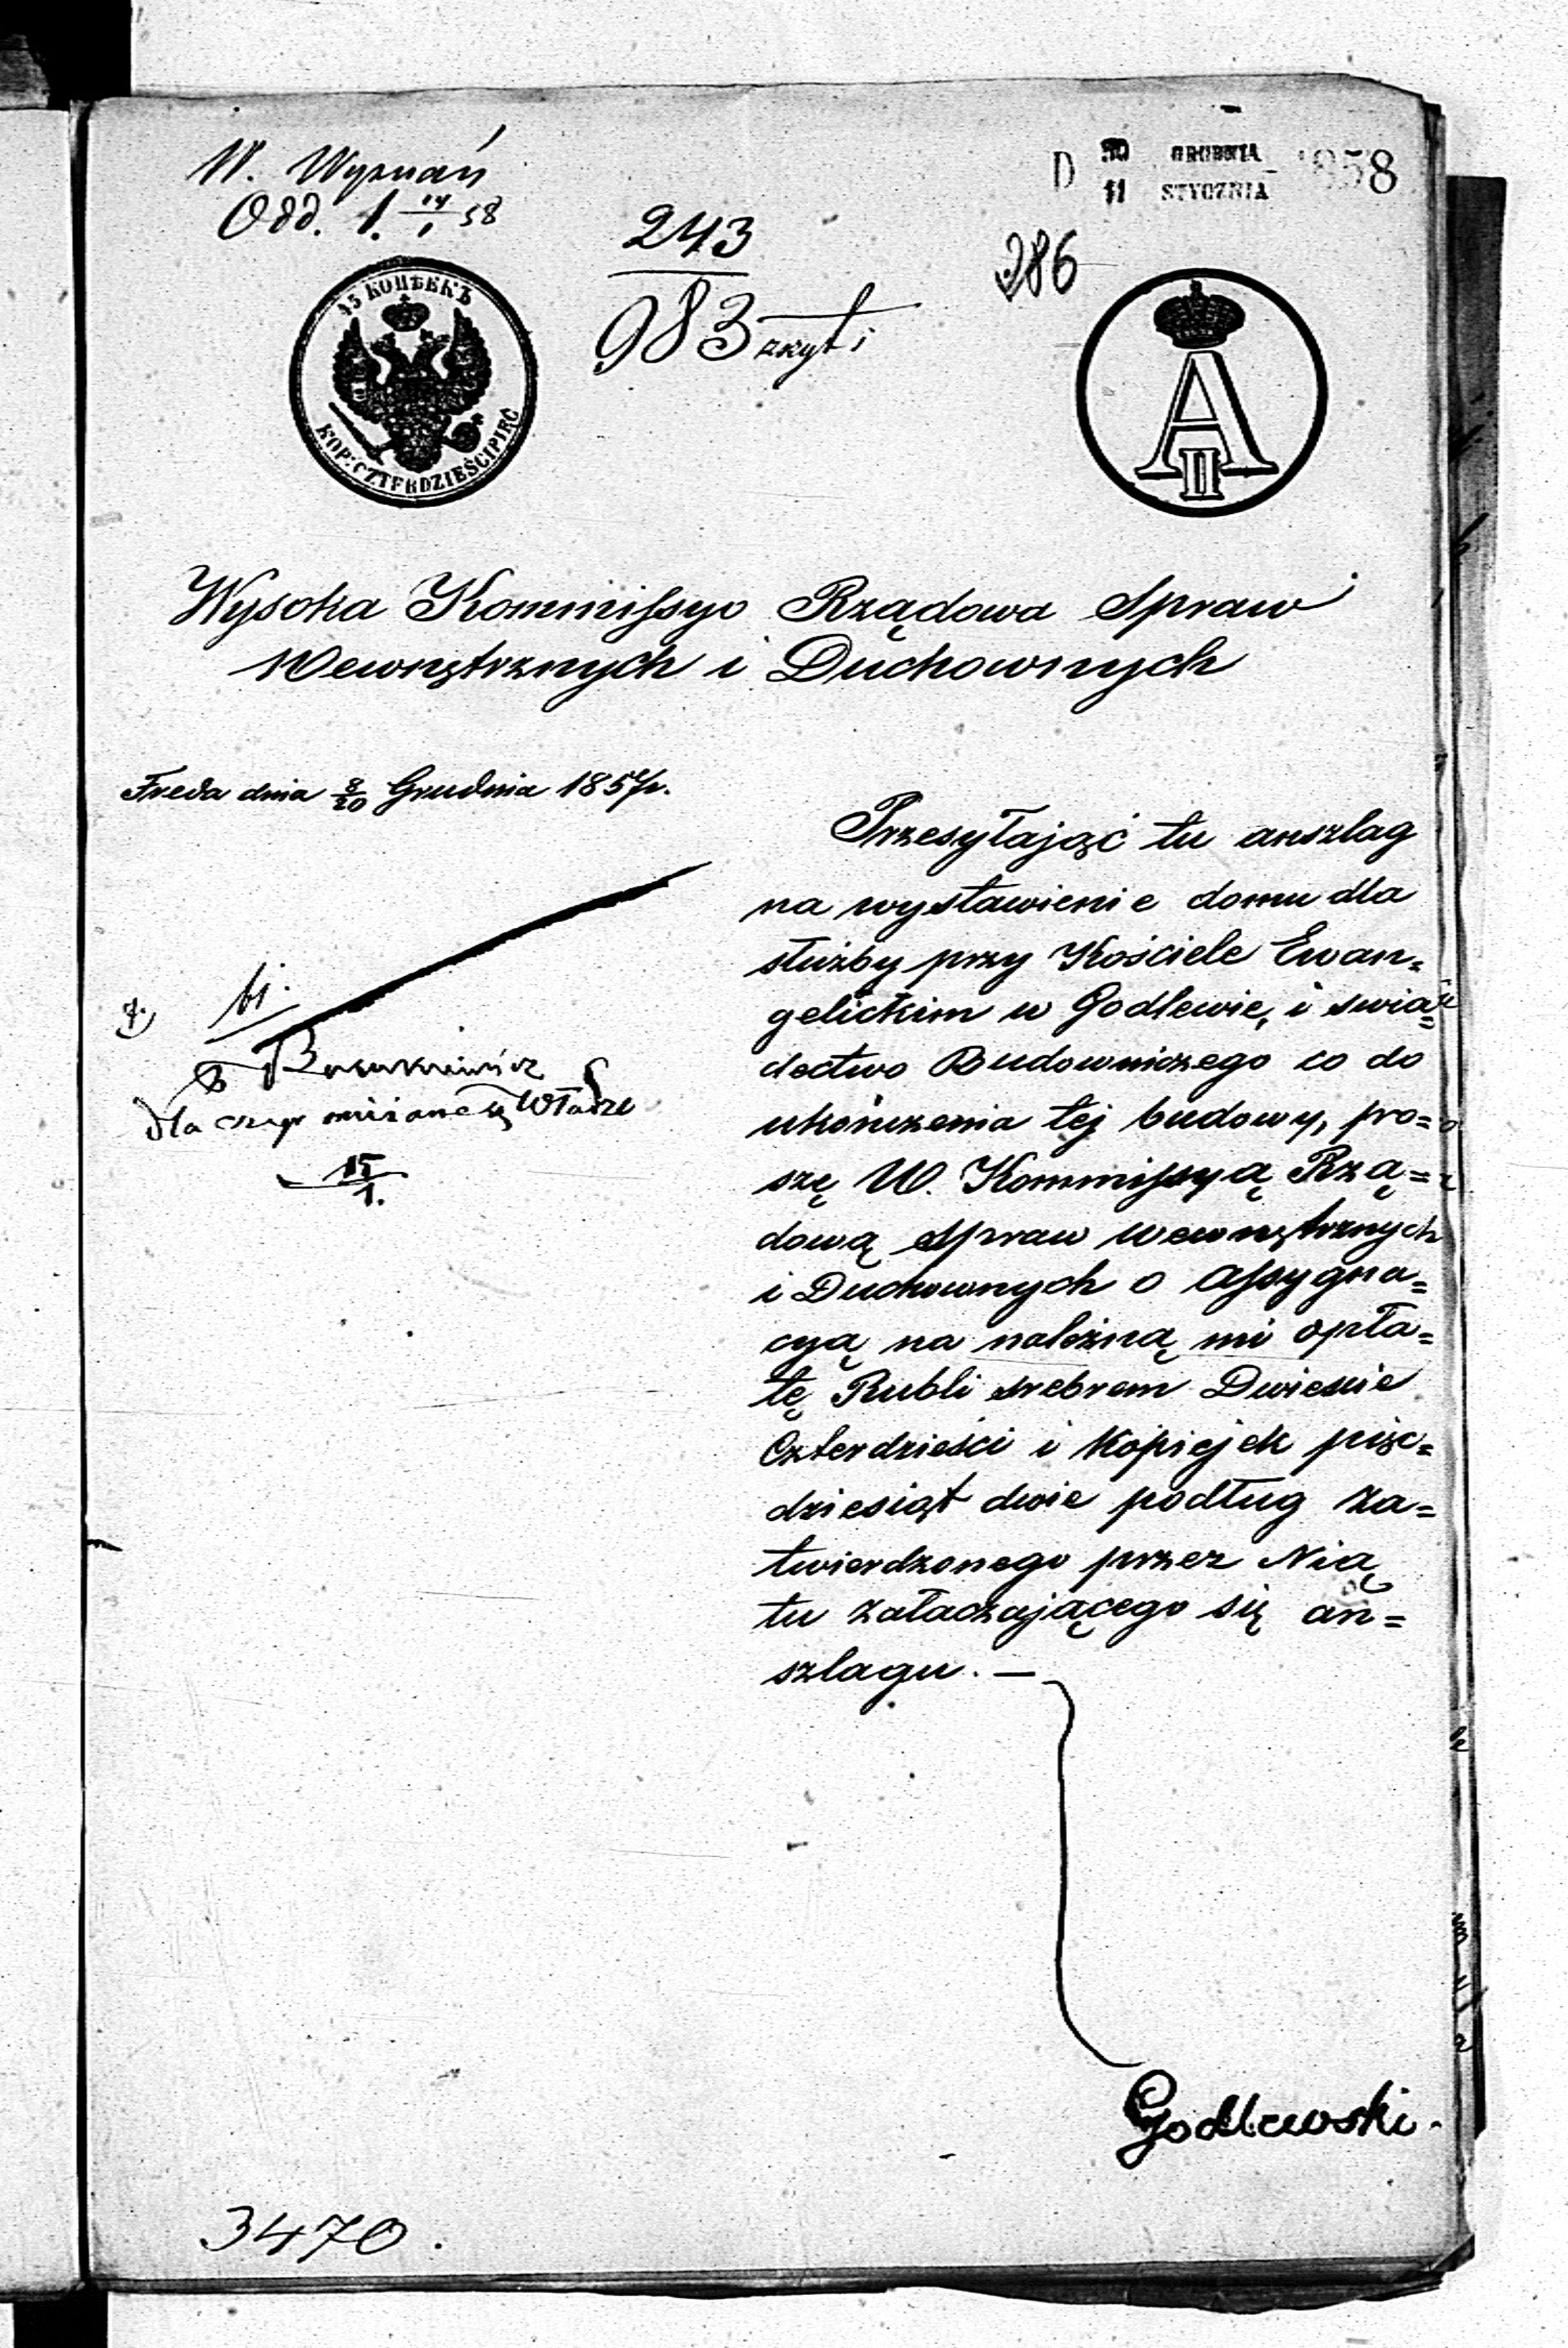 W. Wyznań
Odd. 1. 14/1 58
D 30 GRUDNIA 1858
11 STYCZNIA
243
983
286
45 КОПѢЕКЪ
KOP: CZTERDZIEŚCI PIĘĆ
A II
Wysoka Kommissyo Rządowa Spraw
Wewnętrznych i Duchownych
Freda dnia 8/20 Grudnia 1857 r.
Przesyłając tu anszlag
na wystawienie domu dla
służby przy Kościele Ewan=
gelickim w Godlewie, i swia=
dectwo Budowniczego co do
ukończenia tej budowy, pro=
szę W. Kommissyą Rzą=
dową Spraw Wewnętrznych
i Duchownych o Assygna=
cyą na należną mi opła=
tę Rubli srebrem Dwieście
Czterdzieści i Kopiejek pięć=
dziesiąt dwie podług Za=
twierdzonego przez Nią
tu załączającego się an=
szlagu. —
dla
15/1.
Godlewski.
3470.